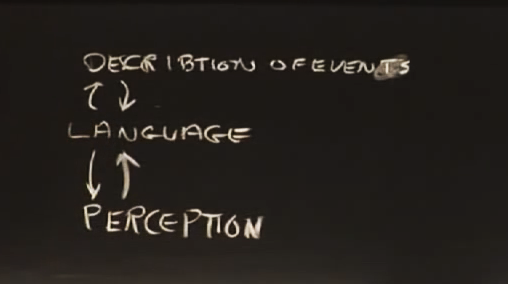 DESCRIBTION OF EVENTS
LANGUAGE
PERCEPTION